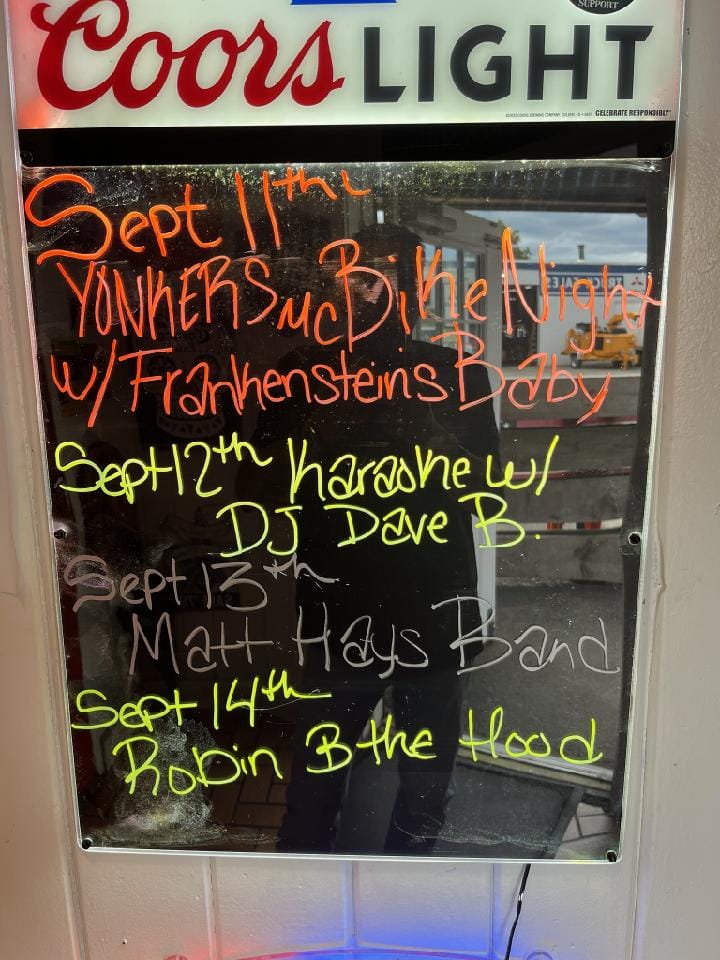 SUPPORT
Coors LIGHT
CELEBRATE RESPONSIBLY
Sept 11th
YONKERS MC Bike Night
w/ Frankensteins Baby
Sept 12th Karaoke w/
DJ Dave B.
Sept 13th
Matt Hays Band
Sept 14th
Robin B the Hood